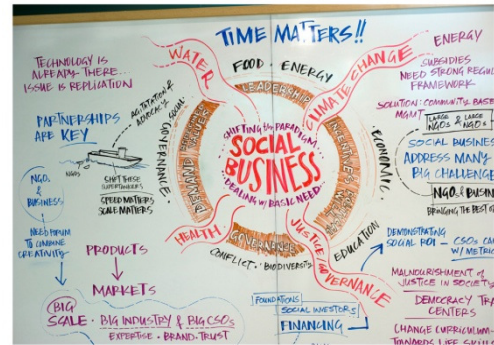 TIME MATTERS!!
TECHNOLOGY IS
ALREADY THERE...
ISSUE IS REPLICATION
PARTNERSHIPS
ARE KEY
AGITATION &
ADVOCACY
NGOs
SHIFT THESE
SUPERTANKERS
SPEED MATTERS
SCALE MATTERS
NGOs
&
BUSINESS
NEED FORUM
TO COMBINE
CREATIVITY
PRODUCTS
MARKETS
BIG
SCALE · BIG INDUSTRY & BIG CSOs
EXPERTISE · BRAND · TRUST
WATER
FOOD · ENERGY
CLIMATE CHANGE
SOCIAL
GOVERNANCE
LEADERSHIP
DEMAND
INCENTIVES
ECONOMIC
SHIFTING the PARADIGM
SOCIAL
BUSINESS
DEALING w/ BASIC NEED
HEALTH
GOVERNANCE
CONFLICT · BIODIVERSITY
JUSTICE/GOVERNANCE
EDUCATION
FOUNDATIONS
SOCIAL INVESTORS
FINANCING
ENERGY
SUBSIDIES
NEED STRONG REGUL
FRAMEWORK
SOLUTION: COMMUNITY BASE
MGMT
LARGE
NGOs & NGOs
SOCIAL BUSINES
ADDRESS MANY
BIG CHALLENGE
NGO & BUSIN
BRINGING THE BEST O
DEMONSTRATING
SOCIAL ROI
CSOs CA
W/ METRIC
MALNOURISHMENT of
JUSTICE IN SOCIET
DEMOCRACY TRA
CENTERS
CHANGE CURRICULUM
TOWARDS LIFE SKILL